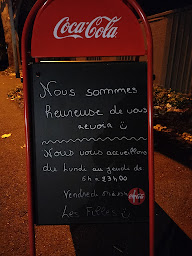 Coca-Cola
Nous sommes
heureuse de vous
revoir :)
Nous vous accueillons
du lundi au jeudi de
6h à 23h00
Vendredi
Les Filles :)